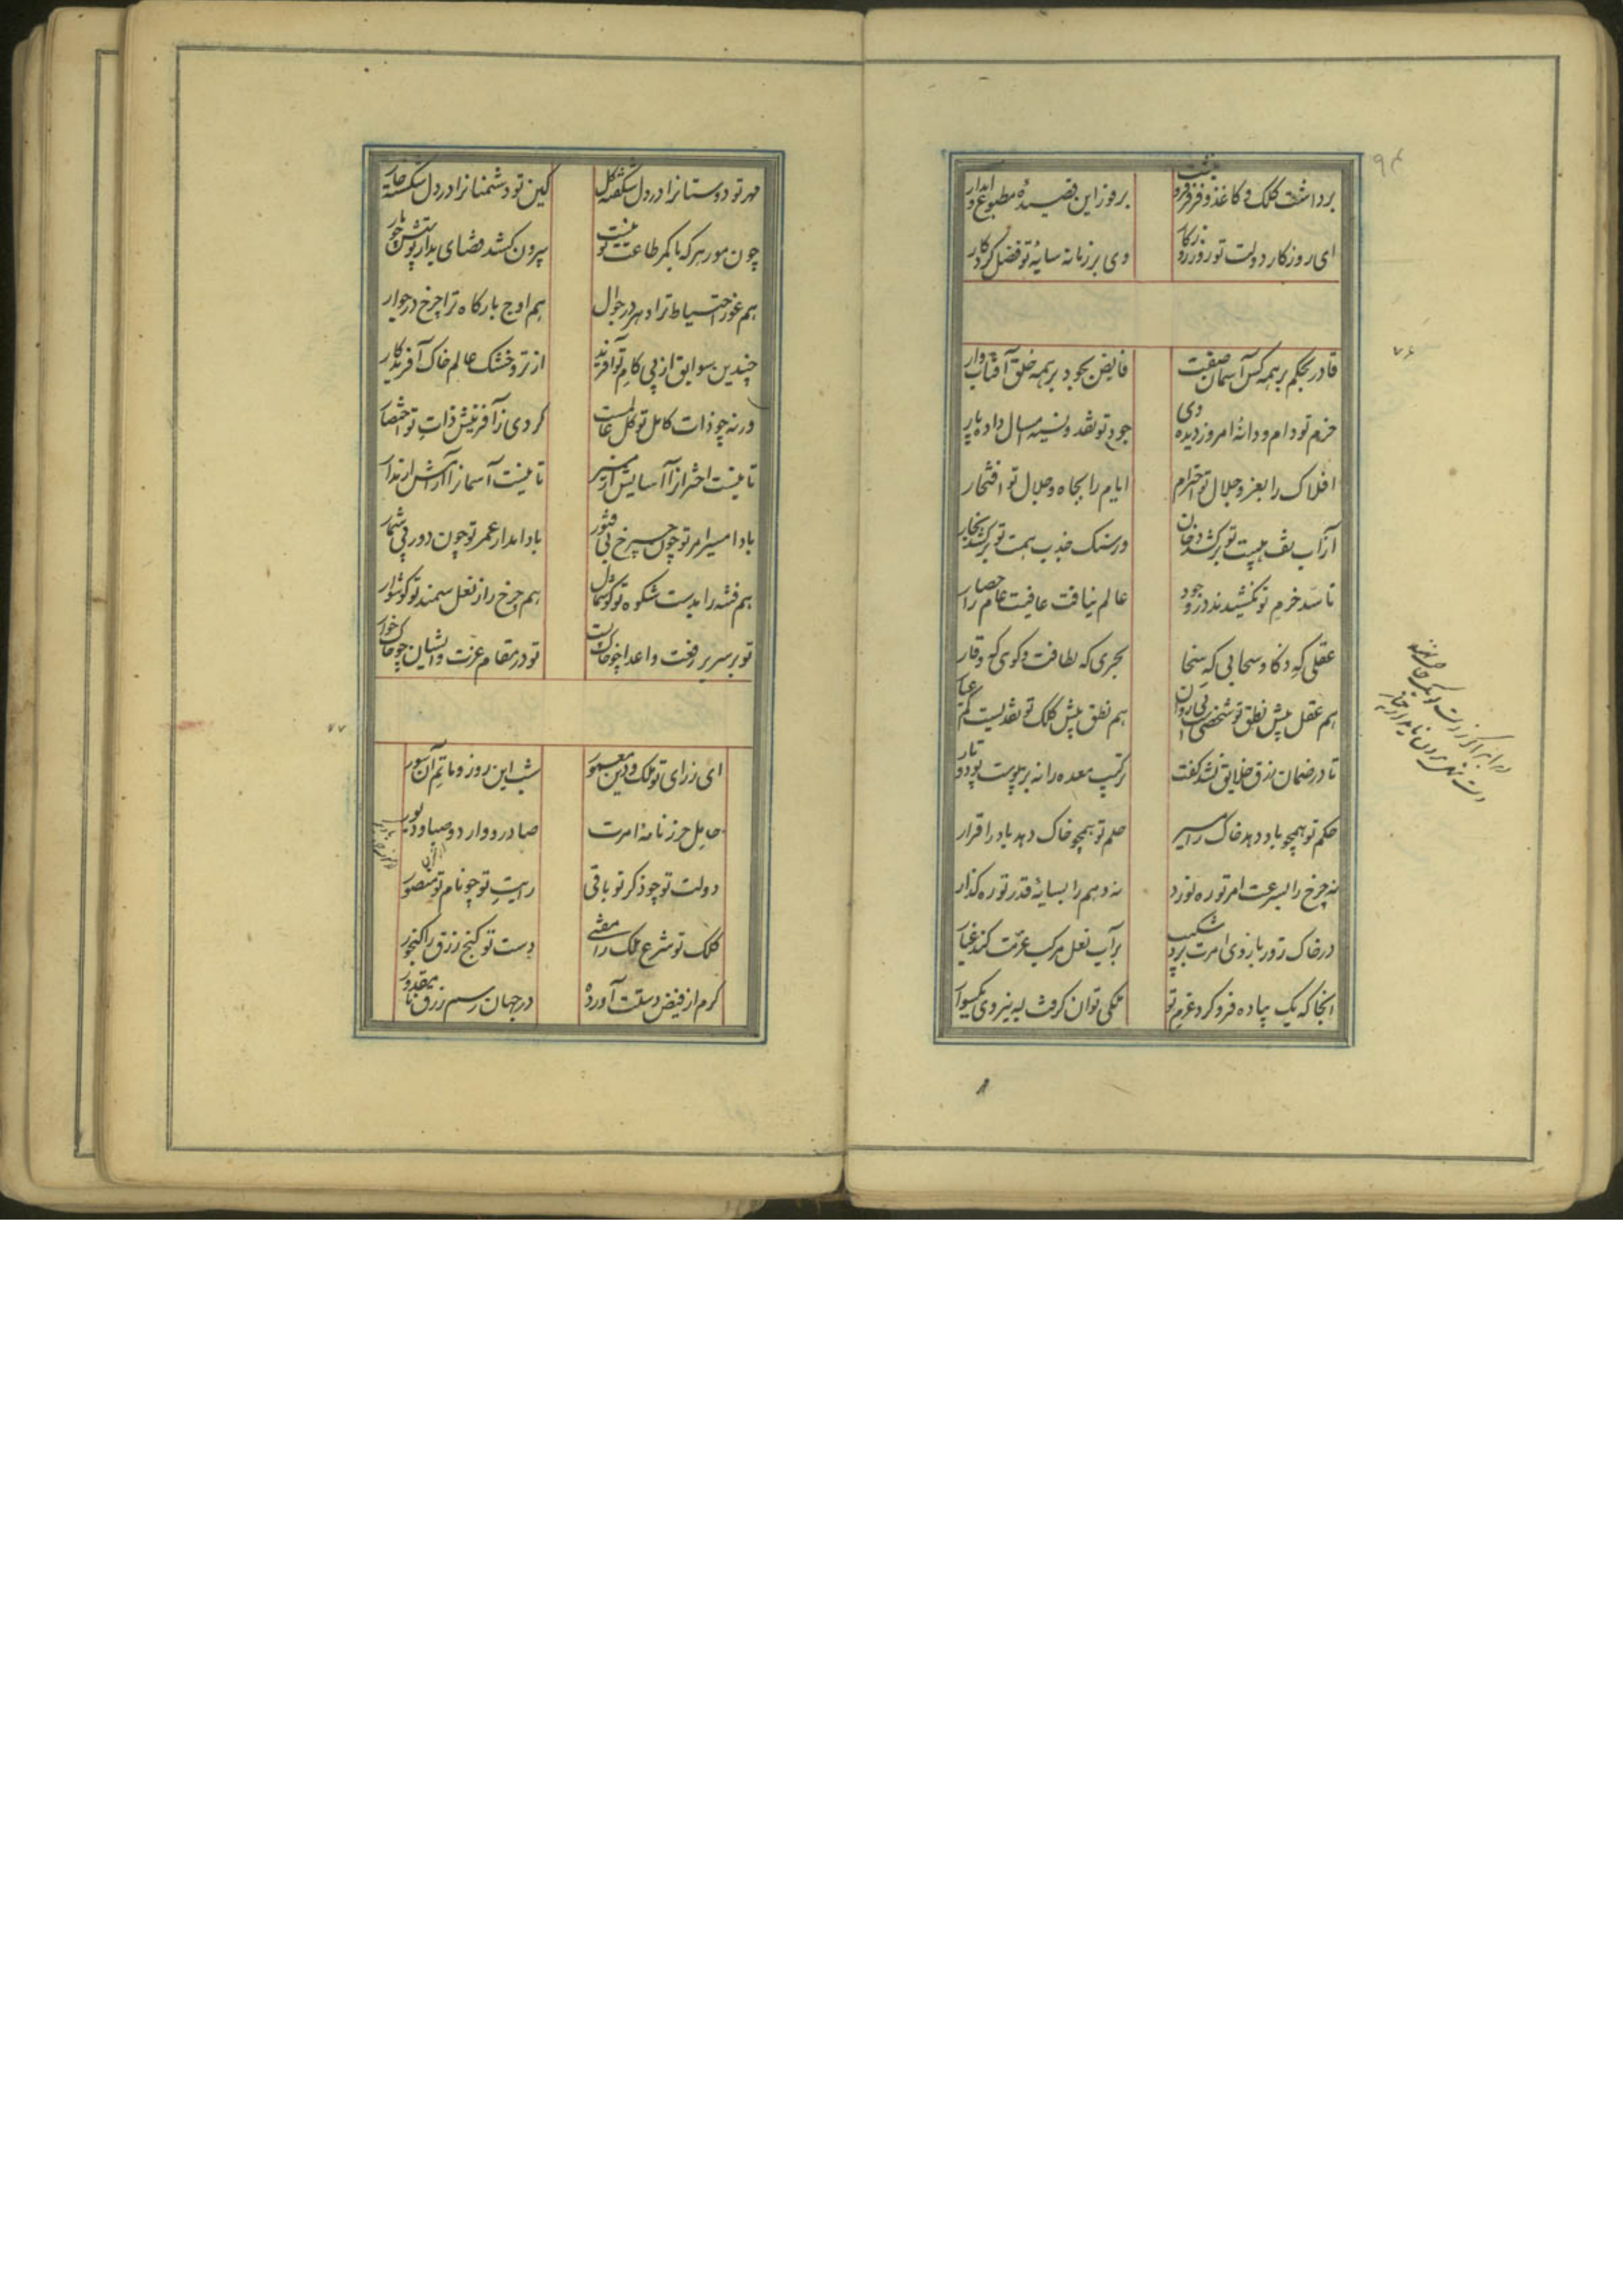 ۹۴
برداشت کلک و کاغذ و فرفر فرو نبشت
بروز این قصیدهٔ مطبوع و آبدار
ای روزکار دولت تو روز روزکار
وی بر زمانه سایهٔ تو فضل کردکار
۷۶
قادر بحکم بر همه کس آسمان صفت
فایض بجود بر همه خلق آفتاب وار
حزم تو دام و دانهٔ امروز دیده دی
جود تو نقد و نسیهٔ امسال داده پار
افلاک را بعز و جلال تو احترام
ایام را بجاه و جلال تو افتخار
از آب تف هیبت تو برکشد دخان
در سنک جذب همت تو برکشد بخار
تا سد حزم تو نکشیدند در وجود
عالم نیافت عافیت عام را حصار
عقلی که ذکا و سحابی که سخا
بحری که لطافت و کوی که وقار
هم عقل پیش نطق تو شخصی است بی روان
هم نطق پیش کلک تو نقدیست کم عیار
تا در ضمان رزق خلایق نشد کفت
ترکیب معده را نه بپیوست پود و تار
حکم تو همچو باد دهد خاک را مسیر
حلم تو همچو خاک دهد باد را قرار
نه چرخ را بسرعت امر تو ره نورد
نه وهم را بسایهٔ قدر تو ره کذار
در خاک زور بازوی امرت برد شکیب
بر آب نعل مرکب عزمت کند غبار
آنجا که یک پیاده فرو کرد عزم تو
ملکی توان کرفت به نیروی یکسوار
مهر تو دوستانرا در دل شکفته کل
کین تو دشمنانرا در دل شکسته خار
چون مور هر که با کمر طاعت تو نیست
بیرون کشد قضای بد از پوستش چو مار
هم غور احتیاط ترا دهر در جوال
هم اوج بارکاه ترا چرخ در جوار
چندین سوابق از پی کام تو آفرید
از تر و خشک عالم خاک آفریدکار
ورنه چو ذات کامل تو کل عالمست
کردی ز آفرینش ذات تو اختصار
تا نیست اختران را آسایش از مسیر
تا نیست آسمان را آرامش از مدار
بادا مسیر امر تو چون چرخ بی فتور
بادا مدار عمر تو چون دور بی شمار
هم فتنه را بدست شکوه تو کوشمال
هم چرخ را ز نعل سمند تو کوشوار
تو بر سریر رفعت و اعدا چو خاک پست
تو در مقام عزت و ایشان چو خاک خوار
۷۷
ای ز رای تو ملک و دین معمور
شب این روز و ماتم آن سور
حامل حرز نامهٔ امرت
صادر و وارد و صبا و دبور
دولت تو چو ذکر تو باقی
رایت تو چو نام تو منصور
کلک تو شرع ملک را مفتی
دست تو کنج رزق را کنجور
کرم از فیض دستت آورده
در جهان رسم رزق نامقدور